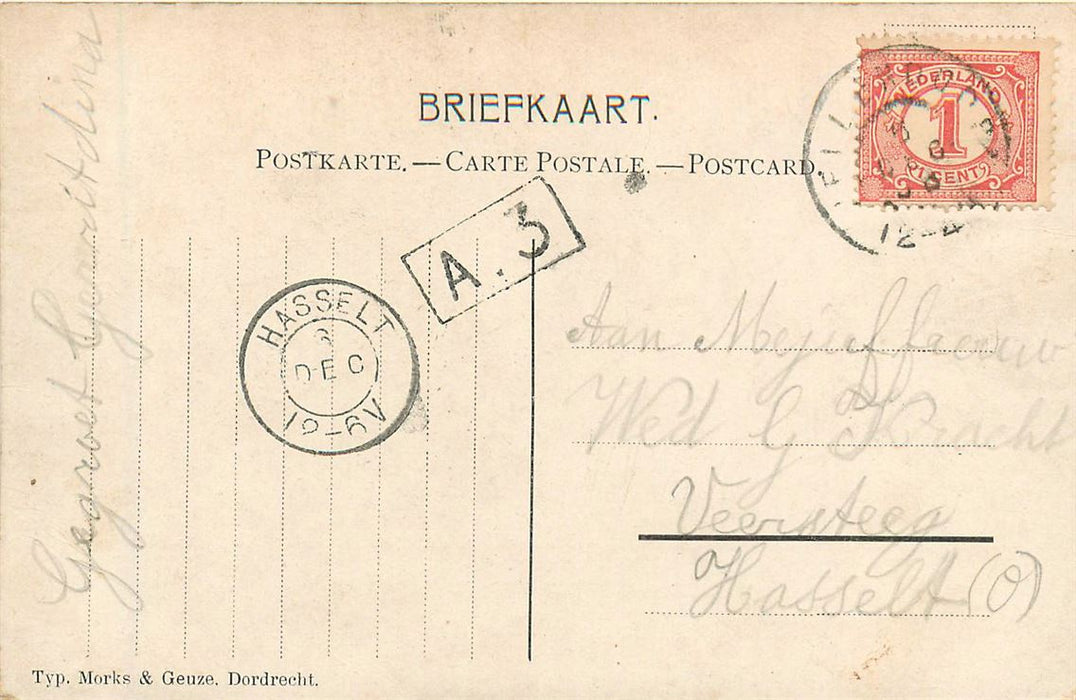 BRIEFKAART.
POSTKARTE. — CARTE POSTALE. — POSTCARD.
NEDERLAND
1
CENT
A. 3
HASSELT
DEC
12-6V
12-4
Gegroet Gerritdina
Aan Mejuffrouw
Wed G Kracht
Veersteeg
Hasselt (O)
Typ. Morks & Geuze, Dordrecht.